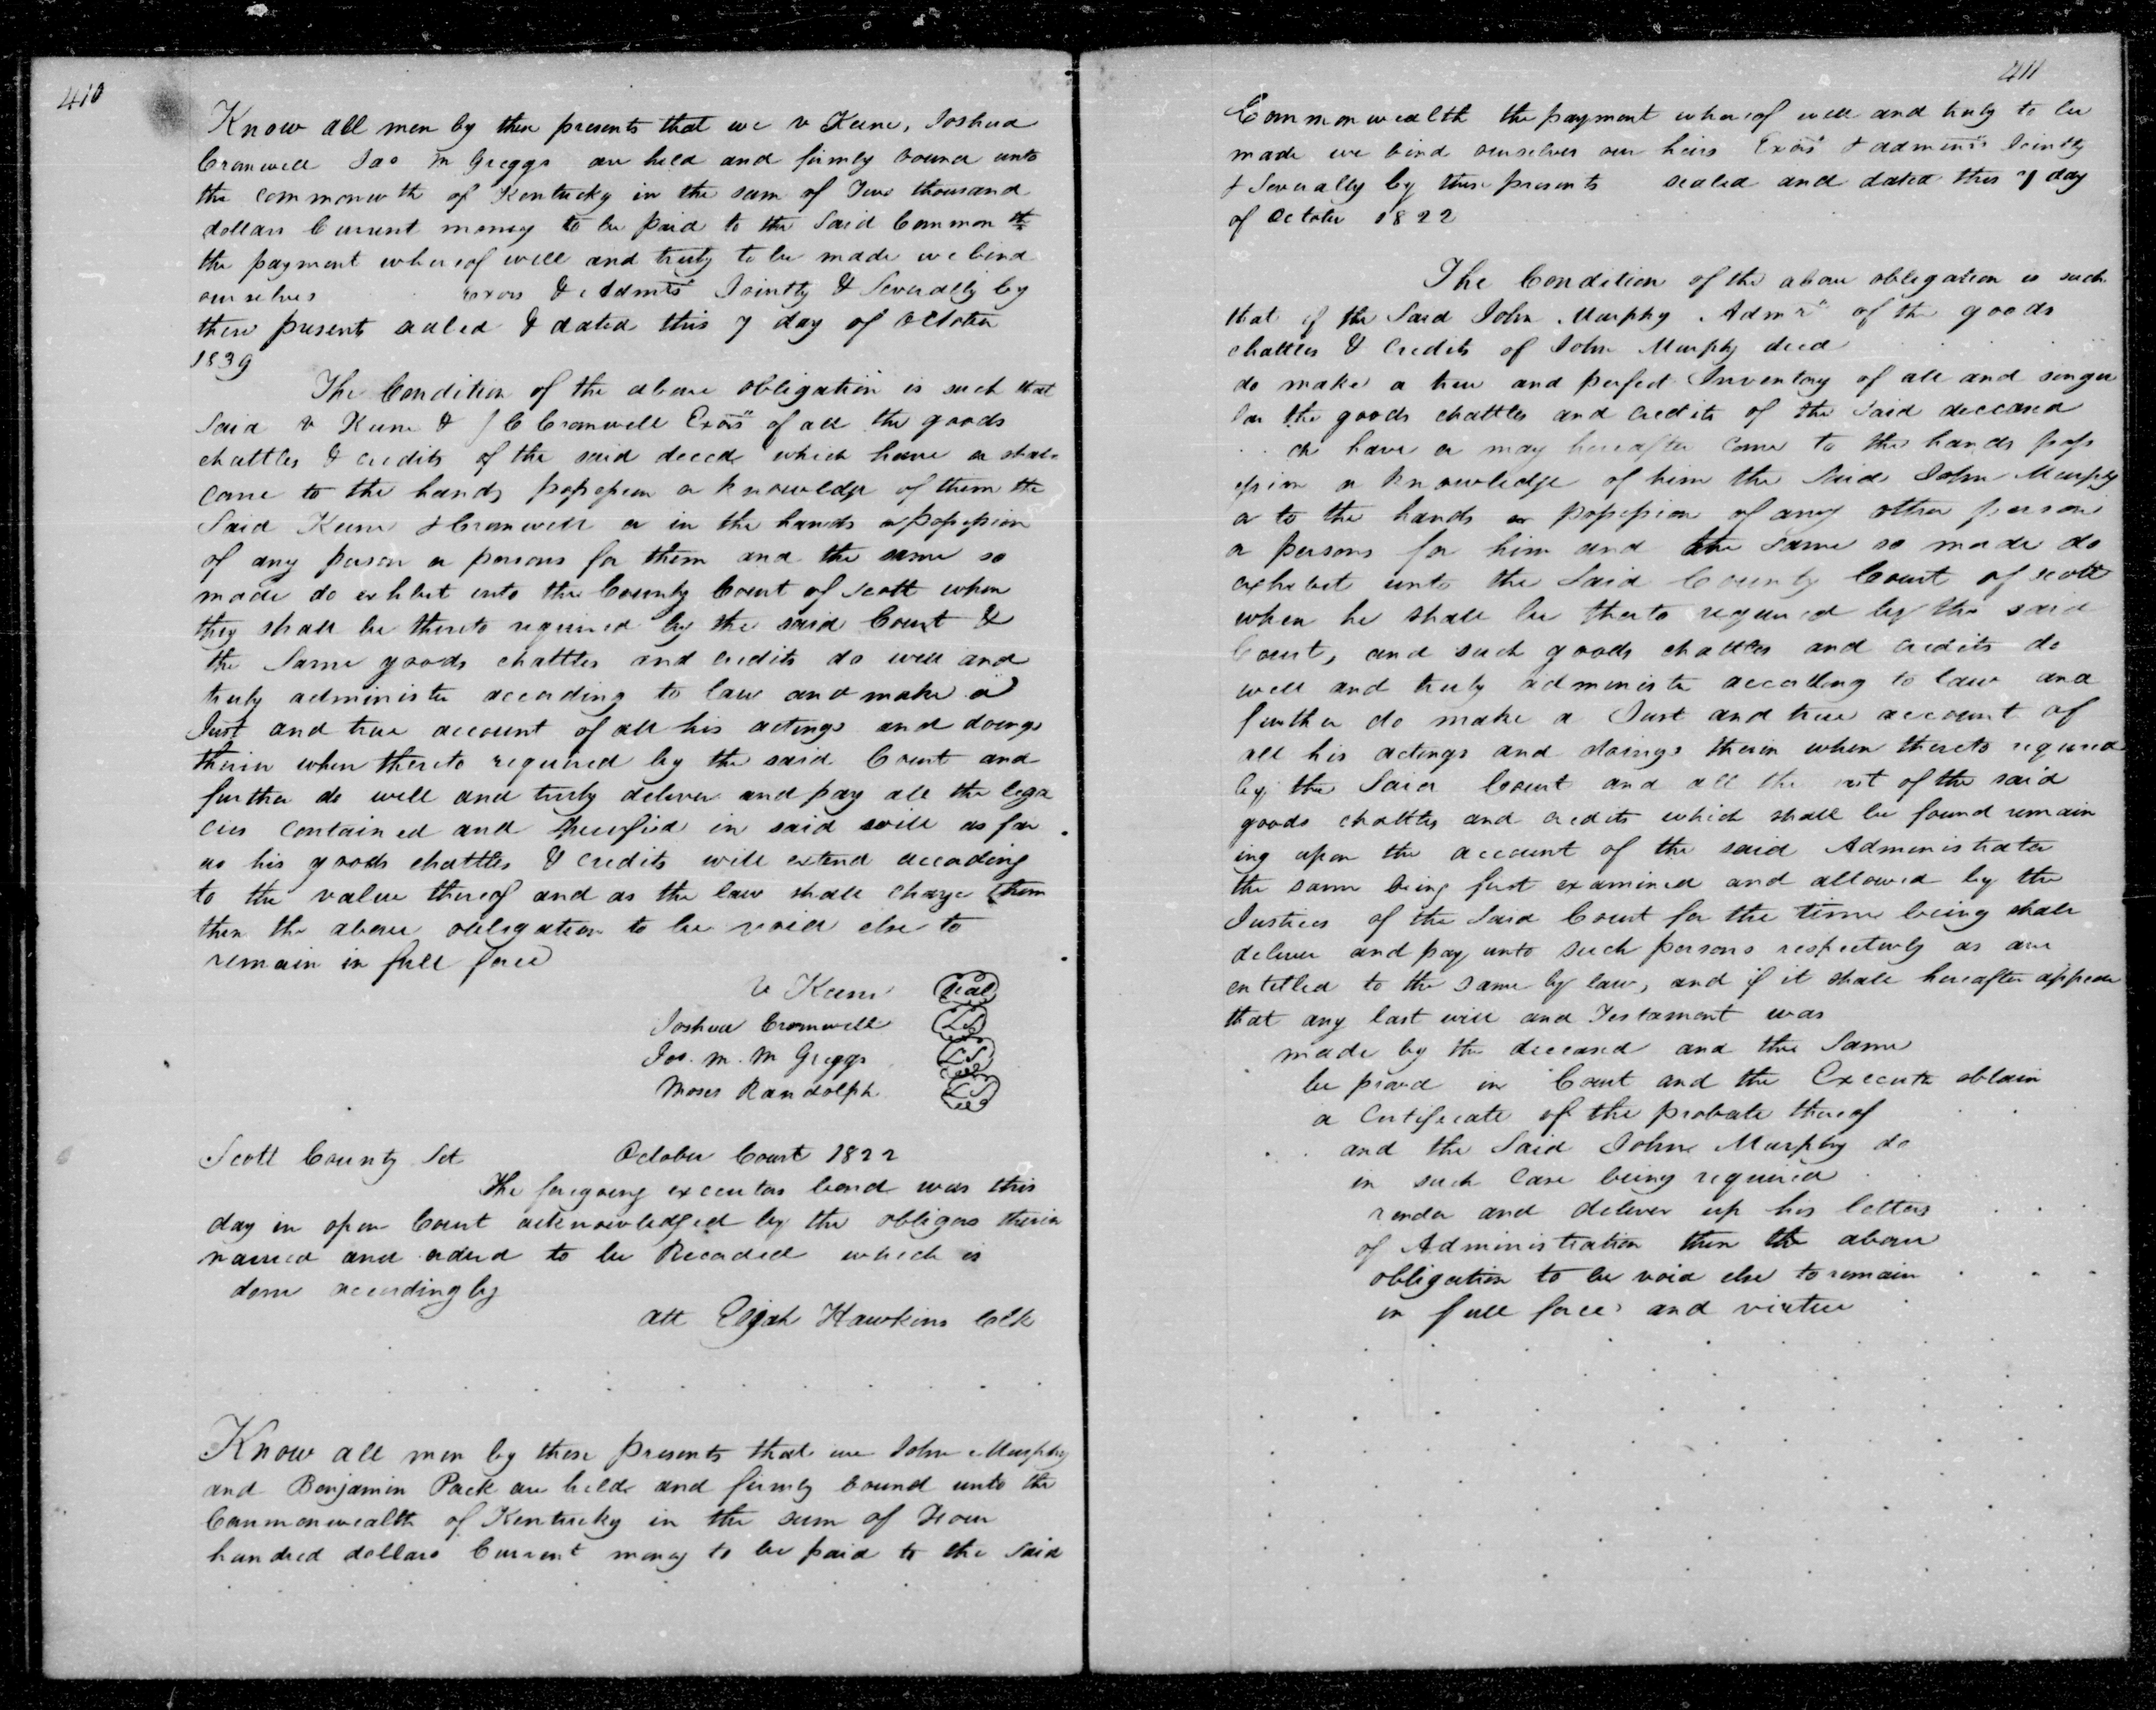 410
Know all men by these presents that we v Keene, Joshua
Cromwell Jas m Greggs are held and firmly bound unto
the commonwth of Kentucky in the sum of Two thousand
dollars Current money to be paid to the Said Common th
the payment whereof well and truly to be made we bind
ourselves exors & Admrs Jointly & Severally by
these present sealed & dated this 7 day of October
1839
The Condition of the above obligation is such that
Said v Keene & J C Cromwell Exors of all the goods
chattles & credits of the said deced which have or shall
come to the hands possession or knowledge of them the
Said Keene & Cromwell or in the hands or possession
of any person or persons for them and the same so
made do exhibit into the County Court of Scott when
they shall be thereto required by the said Court &
the Same goods chattles and credits do well and
truly administer according to law and make a
Just and true account of all his actings and doings
therein when thereto required by the said Court and
further do well and truly deliver and pay all the lega
cies contained and specified in said will as far
as his goods chattles & credits will extend according
to the value thereof and as the law shall charge them
then the above obligation to be void else to
remain in full force
V Keene Seal
Joshua Cromwell LS
Jas. m. m Greggs LS
Moses Randolph LS
Scott County Sct October Court 1822
The foregoing executors bond was this
day in open Court acknowledged by the obligors therein
named and ordered to be Recorded which is
done accordingly
att Elijah Hawkins Clk
Know all men by these presents that we John Murphy
and Benjamin Pack are held and firmly bound unto the
Commonwealth of Kentucky in the sum of Four
hundred dollars Current money to be paid to the Said
411
Commonwealth the payment whereof well and truly to be
made we bind ourselves our heirs Exors & admrs Jointly
& Severally by these presents sealed and dated this 7 day
of October 1822
The Condition of the above obligation is such
that if the Said John Murphy Admr of the goods
chattles & Credits of John Murphy deced
do make a true and perfect Inventory of all and singu
lar the goods chattles and credits of the Said deceased
ch have or may hereafter come to the hands poss
ession or knowledge of him the Said John Murphy
or to the hands or possession of any other person
or persons for him and the same so made do
exhibit unto the Said County Court of Scott
when he shall be thereto required by the said
Court, and such goods chattles and credits do
well and truly administer according to law and
further do make a Just and true account of
all his actings and doings therein when thereto required
by the Said Court and all the rest of the said
goods chattles and credits which shall be found remain
ing upon the account of the said Administrator
the same being first examined and allowed by the
Justices of the Said Court for the time being shall
deliver and pay unto such persons respectively as are
entitled to the same by law, and if it shall hereafter appear
that any last will and Testament was
made by the deceased and the Same
be proved in Court and the Executor obtain
a Certificate of the probate thereof
and the Said John Murphy do
in such case being required
render and deliver up his letters
of Administration then the above
obligation to be void else to remain
in full force and virtue